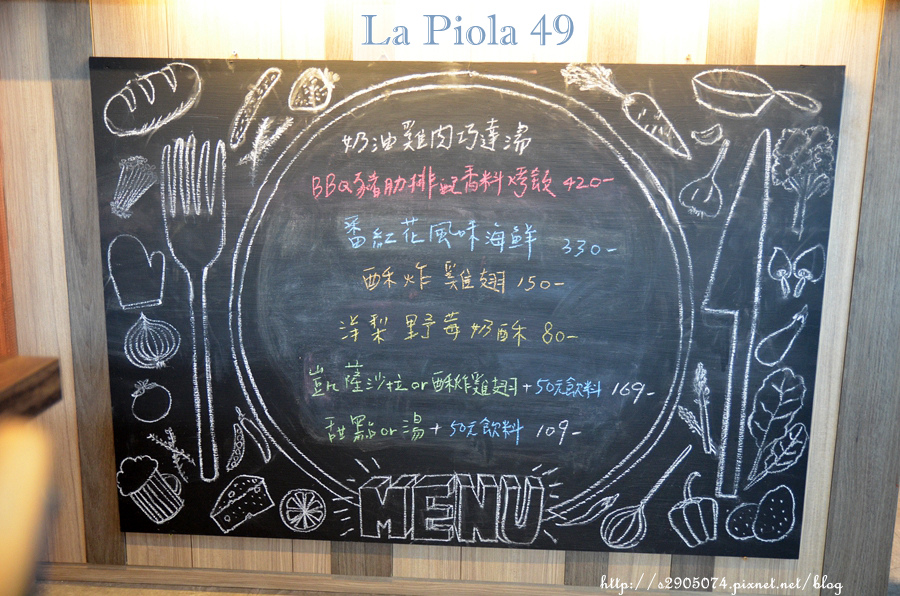 La Piola 49
奶油雞肉巧達湯
BBQ豬肋排配香料烤飯 420-
番紅花風味海鮮 330-
酥炸雞翅 150-
洋梨野莓奶酥 80-
凱薩沙拉or酥炸雞翅+50元飲料 169-
甜點or湯+50元飲料 109-
MENU
http://s2905074.pixnet.net/blog